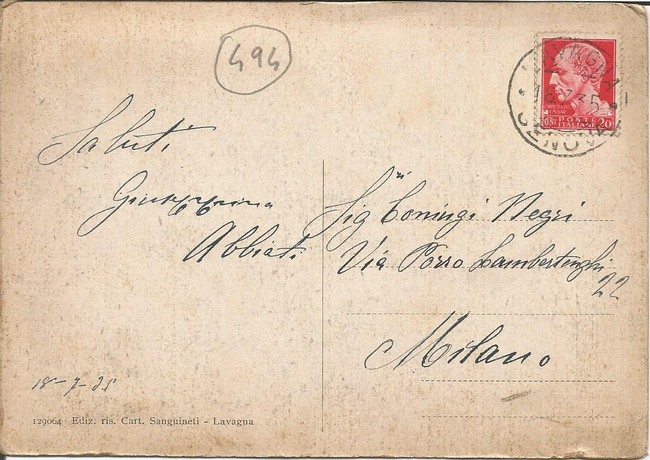 494
LAVAGNA
18.7.35
GENOVA
POSTE
ITALIANE
CENT 20
Saluti
Giuseppina
Abbiati
Sig.ri Coniugi Negri
Via Porro Lambertenghi
22
Milano
18-7-35
129064 - Ediz. ris. Cart. Sanguineti - Lavagna